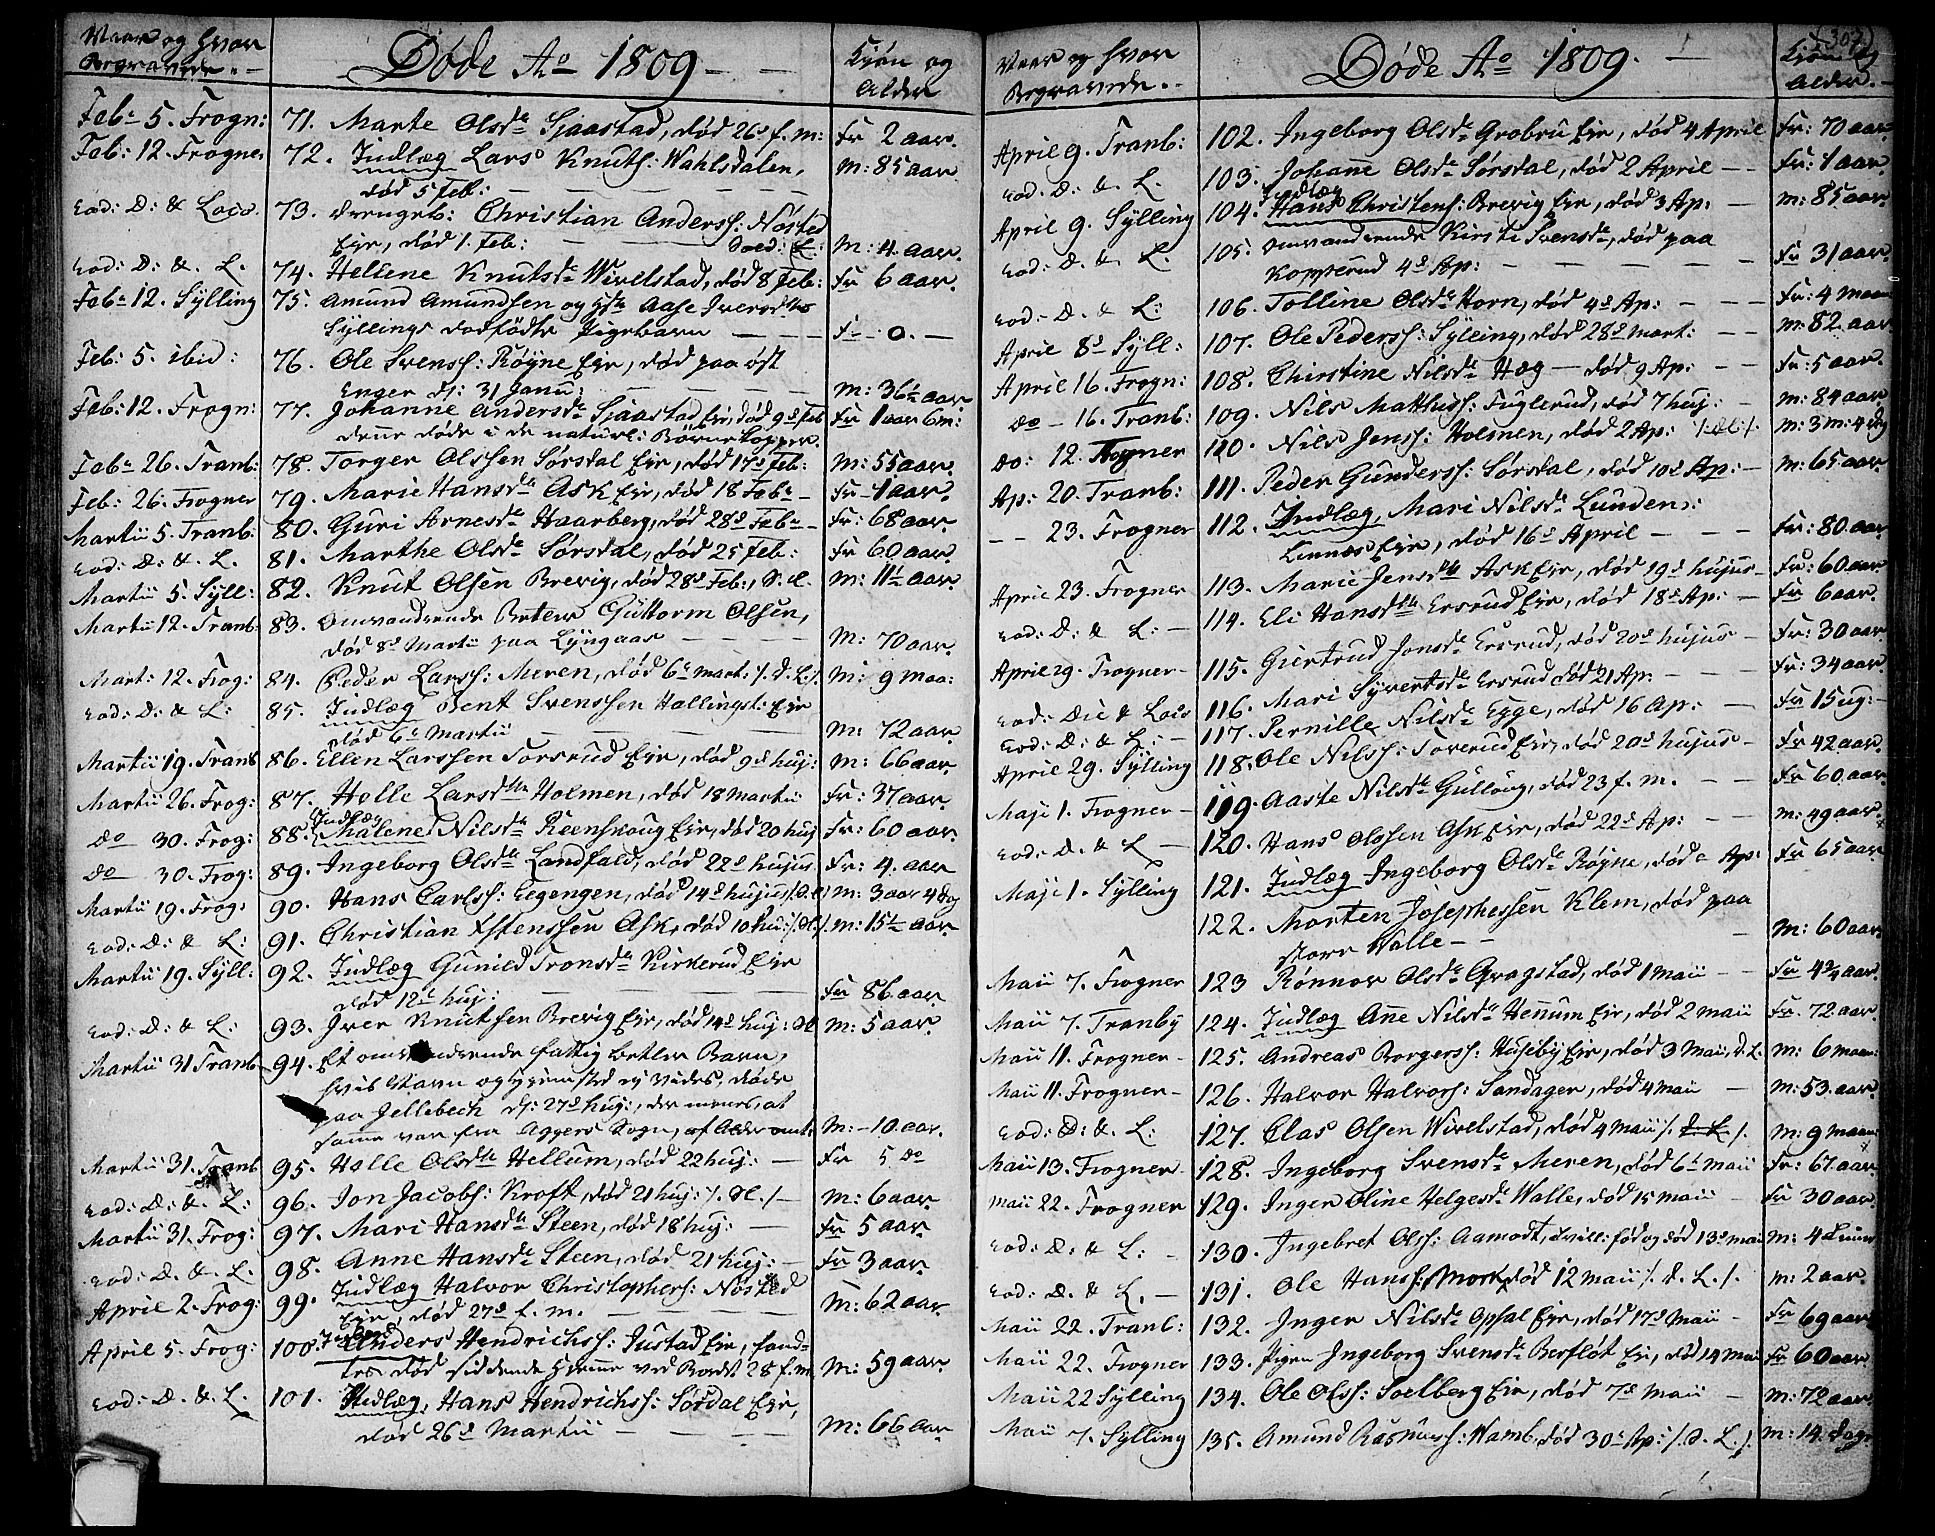 Naar og hvor
Begravede.
Døde Ao 1809
Kjøn og
Alder
Feb: 5. Frogn: 71. Marte Olsd: Sjaastad, død 26 f. m: Fr 2 aar.
Feb: 12. Frogner 72. Indlæg Lars Knuts: Wahlsdalen,
død 5 Feb: M: 85 aar
eod: D: & Loco. 73. Drengeb: Christian Anders: Nøsted
Eje, død 1. Feb: M: 4 aar.
eod: D: & L. 74. Hellene Knutsd: Wivelstad, død 8 Feb: Fr 6 aar.
Feb: 12. Sylling 75. Amund Amundsen og Aase Iversd:
Syllings dødfødte Pigebarn Fr 0.
Feb: 5. ibid: 76. Ole Svens: Røyne Eje, død paa øst
Enger d: 31 Janu: M: 36½ aar
Feb: 12. Frogn: 77. Johanne Andersd: Sjaastad Eje, død 9 Feb Fr 1 aar 6 m:
denne døde i de naturl: Børnekopper.
Feb: 26. Tranb: 78. Torger Olssen Sørsdal Eje, død 17 Feb: M: 55 aar.
Feb: 26. Frogner 79. Marie Hansd: Ask Eje, død 18 Feb: Fr 1 aar.
Martii 5. Tranb: 80. Guri Arnesd: Haarberg, død 28 Feb: Fr: 68 aar.
eod: D: & L. 81. Marthe Olsd: Sørsdal, død 25 Feb: Fr 60 aar.
Martii 5. Syll: 82. Knut Olsen Brevig, død 28 Feb:, d. L. M: 11½ aar.
Martii 12. Tranb: 83. Omvandrende Betler Guttorm Olsen,
død 8 Martii paa Lyngaas M: 70 aar.
Mart: 12. Frog: 84. Peder Lars: Meren, død 6 mart: /. d. L. /. M: 9 maa:
eod: D: & L: 85. Indlæg Bent Svenssen Hallingst: Eje
død 6 Martii M: 72 aar.
Martii 19. Tranb 86. Ellen Larssen Torsrud Eje, død 9 huj: M: 66 aar.
Martii 26. Frog: 87. Helle Larsd: Holmen, død 18 Martii Fr: 37 aar.
do 30. Frog: 88. Indlæg Malene Nilsd: Reenskoug Eje, død 20 huj Fr: 60 aar.
do 30. Frog: 89. Ingeborg Olsd: Landfald, død 22 hujus Fr: 4. aar
Martii 19. Frog: 90. Hans Carls: Eegengen, død 14 hujus /. d. L. M: 3 aar 4 Dg
eod: D: & L: 91. Christian Estenssen Ask, død 10 hu: /. d. L. /. M: 15½ aar
Martii 19. Syll: 92. Indlæg Gunild Tronsd: Kirkerud Eje
død 12 huj: Fr 86 aar.
eod: D: & L: 93. Iver Knutsen Brevig Eje, død 14 huj: d. L. M: 5 aar.
Martii 31 Tranb 94. Et omvandrende fattig betler Barn,
hvis Navn og Hjemsted ej vides, døde
paa Jellebech d: 27 huj:, der menes, at
samme var fra Aggers Sogn, af Alder omt: M: 10 aar.
Martii 31. Tranb 95. Helle Olsd: Hellum, død 22 huj: Fr 5 do
eod: D: & L: 96. Jon Jacobs: Kroft, død 21 huj: /. d. L. /. M: 6 aar.
Martii 31. Frog: 97. Mari Hansd: Steen, død 18 huj: Fr 5 aar.
eod: D. & L: 98. Anne Hansd: Steen, død 21 huj: Fr 3 aar.
April 2. Frog: 99. Indlæg Halvor Christophers: Nøsted
Eje, død 27 f. m. M: 62 aar.
April 5. Frog: 100. Anders Hendrichs: Justad Eje, fand-
tes død siddende hjemme ved Bordet 28 f. m M: 59 aar.
eod: D. & L. 101. Indlæg, Hans Hendrichs: Sørsdal Eje,
død 26 Martii M: 66 aar.
(307)
Naar og hvor
Begravede.
Døde Ao 1809.
Kjøn og
Alder.
April 9. Tranb: 102. Ingeborg Olsd: Grobru Eje, død 4 April Fr: 70 aar
eod: D: & L. 103. Johanne Olsd: Sørsdal, død 2 April Fr: 1 aar.
April 9. Sylling 104. Indlæg Hans Christens: Brevig Eje, død 3 Ap: M: 85 aar
eod: D. & L: 105. Omvandrende Kirsti Svensd:, død paa
Kopperud 4 Ap: Fr 31 aar
eod: D. & L: 106. Tolline Olsd: Horn, død 4 Ap: Fr: 4 maan
April 8 Syll: 107. Ole Peders: Sylling, død 28 mart: M: 82 aar
April 16. Frogn: 108. Christine Nilsd: Hæg død 9 Ap: Fr: 5 aar.
do 16. Tranb: 109. Nils Mathias: Fuglerud, død 7 huj: M: 84 aar
do: 12. Frogner 110. Nils Jens: Holmen, død 2 Ap: /. d. L. /. M: 3 m: 4 dg
Ap: 20. Tranb: 111. Peder Gunders: Sørsdal, død 10 Ap: M: 65 aar
23. Frogner 112. Indlæg, Mari Nilsd: Lunden:
Linnæs Eje, død 16 April Fr: 80. aar
April 23. Frogner 113. Marie Jensd: Ask Eje, død 19 hujus Fr: 60 aar.
eod: D: & L: 114. Eli Hansd: Ersrud Eje, død 18 Ap: Fr 6 aar.
April 29. Frogner 115. Giertrud Jonsd: Ersrud, død 20 hujus Fr: 30 aar
eod: Die & Loco 116. Mari Syvertsd: Ersrud død 21 Ap: Fr: 34 aar
eod: D: & L: 117. Pernille Nilsd: Egge, død 16 Ap: Fr 15 ug:
April 29. Sylling 118. Ole Nils: Toverud Eje, død 20 hujus Fr 42 aar.
Maji 1. Frogner 119. Aaste Nilsd: Gulloug, død 23 f. m. Fr 60. aar
eod: D. & L 120. Hans Olssen Ask Eje, død 22 Ap: M: 49 aar.
Maji 1. Sylling 121. Indlæg Ingeborg Olsd: Røyne, død Ap: Fr 65 aar
122. Morten Josephessen Klem, død paa
store Walle M: 60 aar.
Maii 7. Frogner 123 Rønnov Olsd: Gragstad, død 1 Maii Fr 4¾ aar.
Maii 7. Tranby 124. Indlæg Ane Nilsd: Henum Eje, død 2 maii Fr. 72. aar
Maii 11. Frogner 125. Andreas Borgers: Huseby Eje, død 3 Maii, d. L. M: 6 maan:
Maii 11. Frogner 126. Halvor Halvors: Sandager, død 4 maii M: 53. aar
eod: D: & L: 127. Clas Olsen Wivelstad, død 4 Maii /. d. L. /. M: 9 maan:
Maii 13. Frogner 128. Ingeborg Svensd: Meren, død 6 maii Fr: 67. aar
maii 22. Frogner 129. Inger Oline Helgesd: Walle, død 15 maii Fr 30 aar
eod: D: & L: 130. Ingebret Ols: Aamodt, tvill: fød og død 13 mai M: 4 Timer
eod: D. & L. 131. Ole Hans: Mork, død 12 maii /. d. L. /. M: 2 aar.
Maii 22. Tranb: 132. Inger Nilsd: Opsal Eje, død 17 Maii Fr 69 aar
Maii 22. Frogner 133. Pigen Ingeborg Svensd: Berfløt Eje, død 14 Mai Fr 60 aar
Maii 22 Sylling 134. Ole Ols: Soelberg Eje, død 7 Maii M: 72 aar
Maii 7. Sylling 135. Amund Rasmus: Wamb, død 30 Ap: /. d. L. /. M: 14. Dage